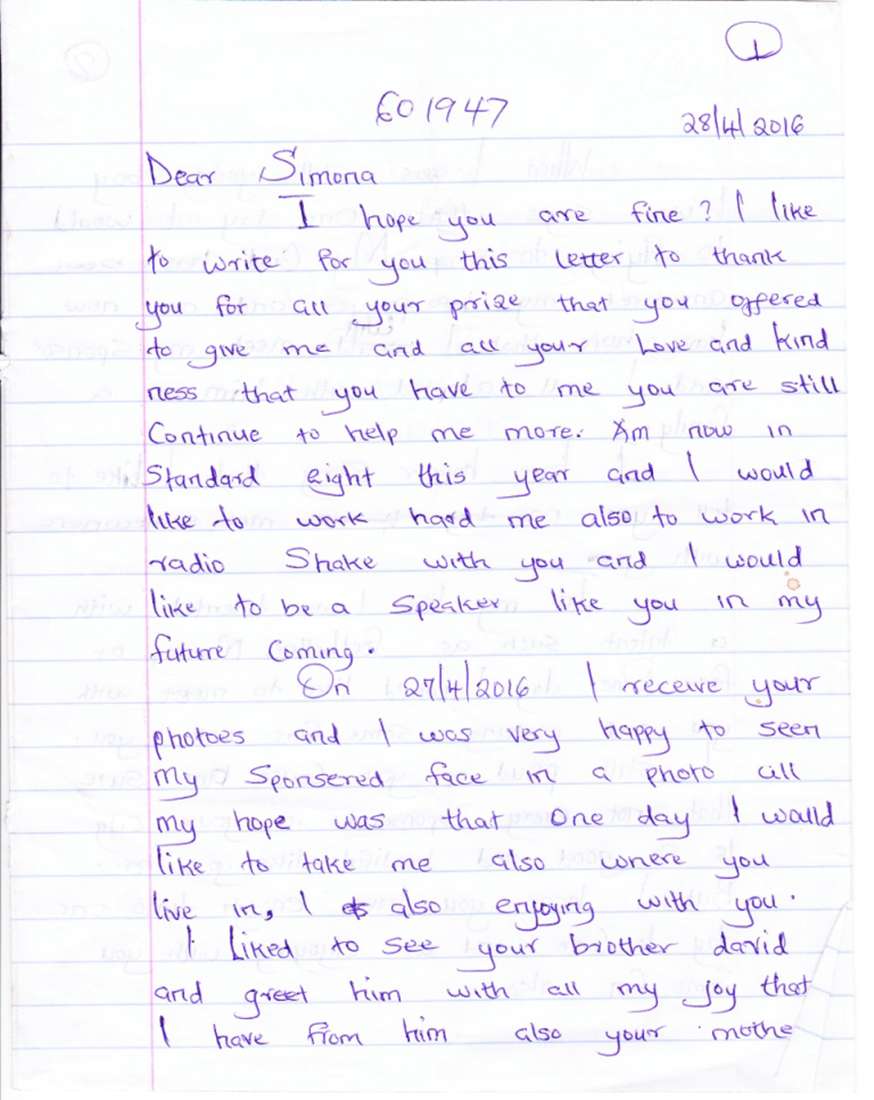 1
601947
28/4/2016
Dear Simona
I hope you are fine? I like
to write for you this letter to thank
you for all your prize that you offered
to give me and all your Love and kind
ness that you have to me you are still
Continue to help me more. Am now in
Standard eight this year and I would
like to work hard me also to work in
radio Shake with you and I would
like to be a Speaker like you in my
future Coming.
On 27/4/2016 I receive your
photoes and I was very happy to seen
my Sponsered face in a photo all
my hope was that One day I would
like to take me also where you
live in, I also enjoying with you.
I Liked to see your brother david
and greet him with all my joy that
I have from him also your mothe